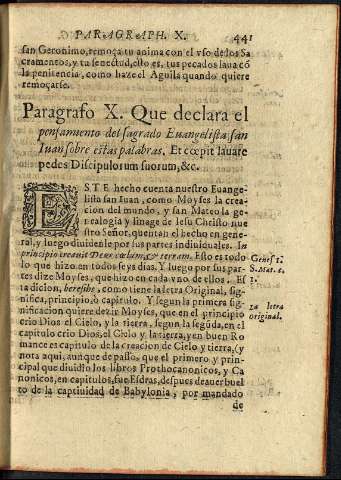 PARAGRAPH. X. 441
san Geronimo, remoça tu anima con el vso de los Sa
cramentos, y tu senectud, esto es, tus pecados laua cõ
la penitencia, como haze el Aguila quando quiere
remoçarse.
Paragrafo X. Que declara el
pensamiento del sagrado Euangelista san
Iuan sobre estas palabras. Et cœpit lauare
pedes Discipulorum suorum, &c.
ESTE hecho cuenta nuestro Euange-
lista san Iuan, como Moyses la crea-
cion del mundo, y san Mateo la ge-
nealogia y linage de Iesu Christo nue
stro Señor, quentan el hecho en gene-
ral, y luego diuidenle por sus partes indiuiduales. In
principio creauit Deus cœlum, & terram. Esto es todo
lo que hizo en todos seys dias. Y luego por sus par-
tes dize Moyses, que hizo en cada vno de ellos. Es
ta dicion, beresíth, como tiene la letra Original, sig-
nifica, principio, ò capitulo. Y segun la primera sig-
nificacion quiere dezir Moyses, que en el principio
crio Dios el Cielo, y la tierra, segun la segũda, en el
capitulo crio Dios el Cielo y la tierra, y en buen Ro
mance es capitulo de la creacion de Cielo y tierra, (y
nota aqui, aunque de passo, que el primero y prin-
cipal que diuidio los libros Prothocanonicos, y Ca
nonicos, en capitulos, fue Esdras, despues de auer buel
to de la captiuidad de Babylonia, por mandado
de
Genes. 1.
S. Mat. c.
1.
la letra
original.